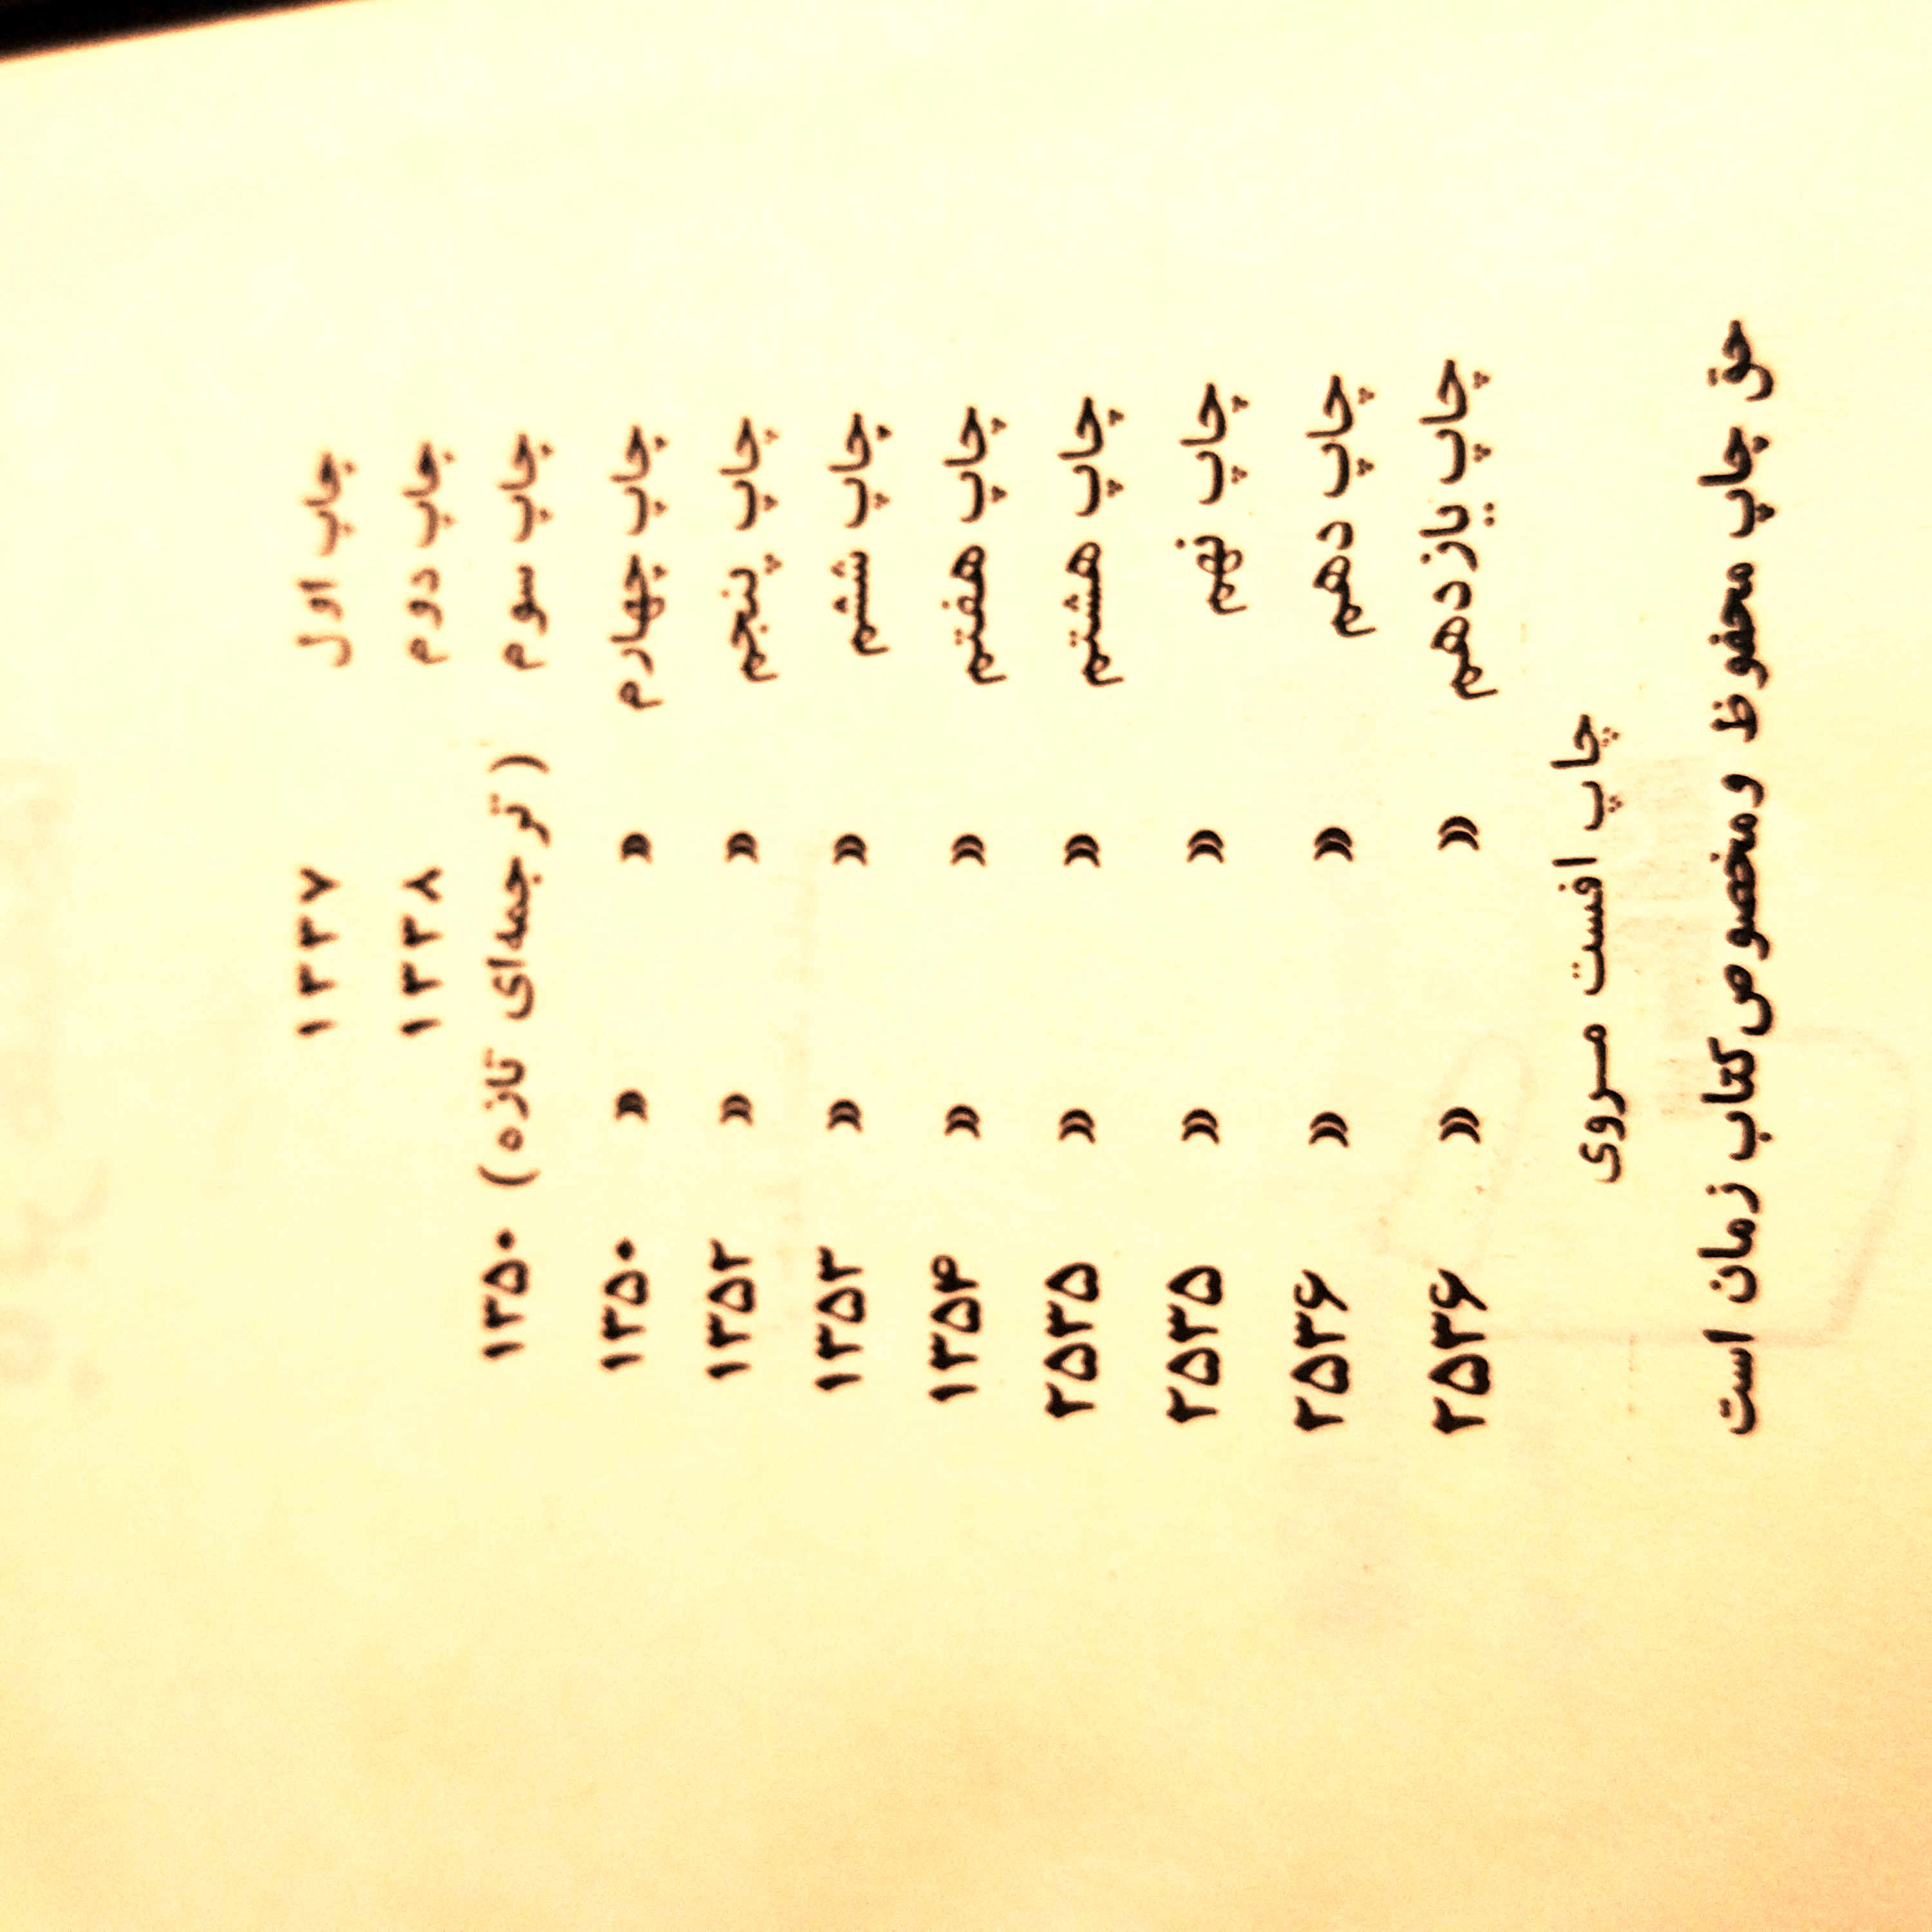 چاپ اول ۱۳۳۷
چاپ دوم ۱۳۳۸
چاپ سوم (ترجمه‌ای تازه) ۱۳۵۰
چاپ چهارم « « ۱۳۵۰
چاپ پنجم « « ۱۳۵۲
چاپ ششم « « ۱۳۵۳
چاپ هفتم « « ۱۳۵۴
چاپ هشتم « « ۲۵۳۵
چاپ نهم « « ۲۵۳۵
چاپ دهم « « ۲۵۳۶
چاپ یازدهم « « ۲۵۳۶
چاپ افست مروی
حق چاپ محفوظ و مخصوص کتاب زمان است